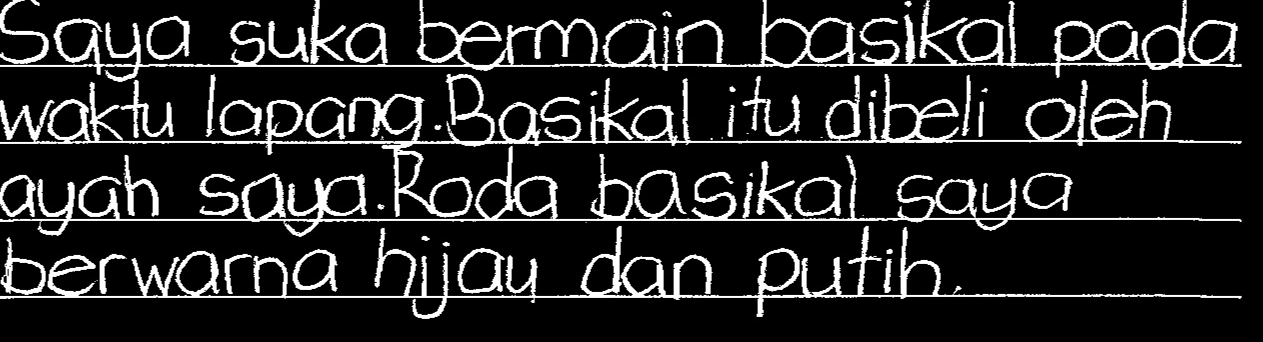 Saya suka bermain basikal pada
waktu lapang.Basikal itu dibeli oleh
ayah saya.Roda basikal saya
berwarna hijau dan putih.